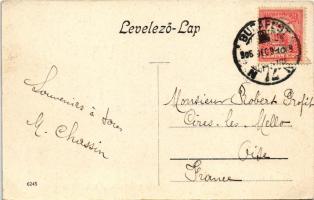 Levelező-Lap
BUDAPEST
72
Souvenirs à tous
M. Chassin
Monsieur Robert Profit
Cires-les-Mello
Oise
France
6245